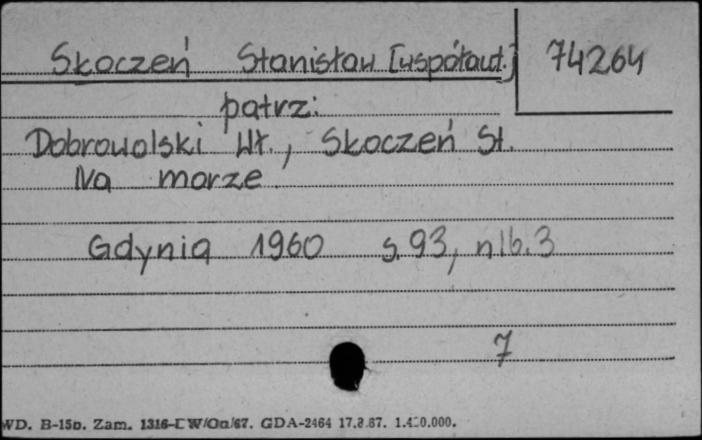 Skoczeń Stanisław [współaut.] 74264
patrz:
Dobrowolski Wł., Skoczeń St.
Na morze
Gdynia 1960 s. 93, nlb. 3
7
WD. B-15b. Zam. GDA-2464